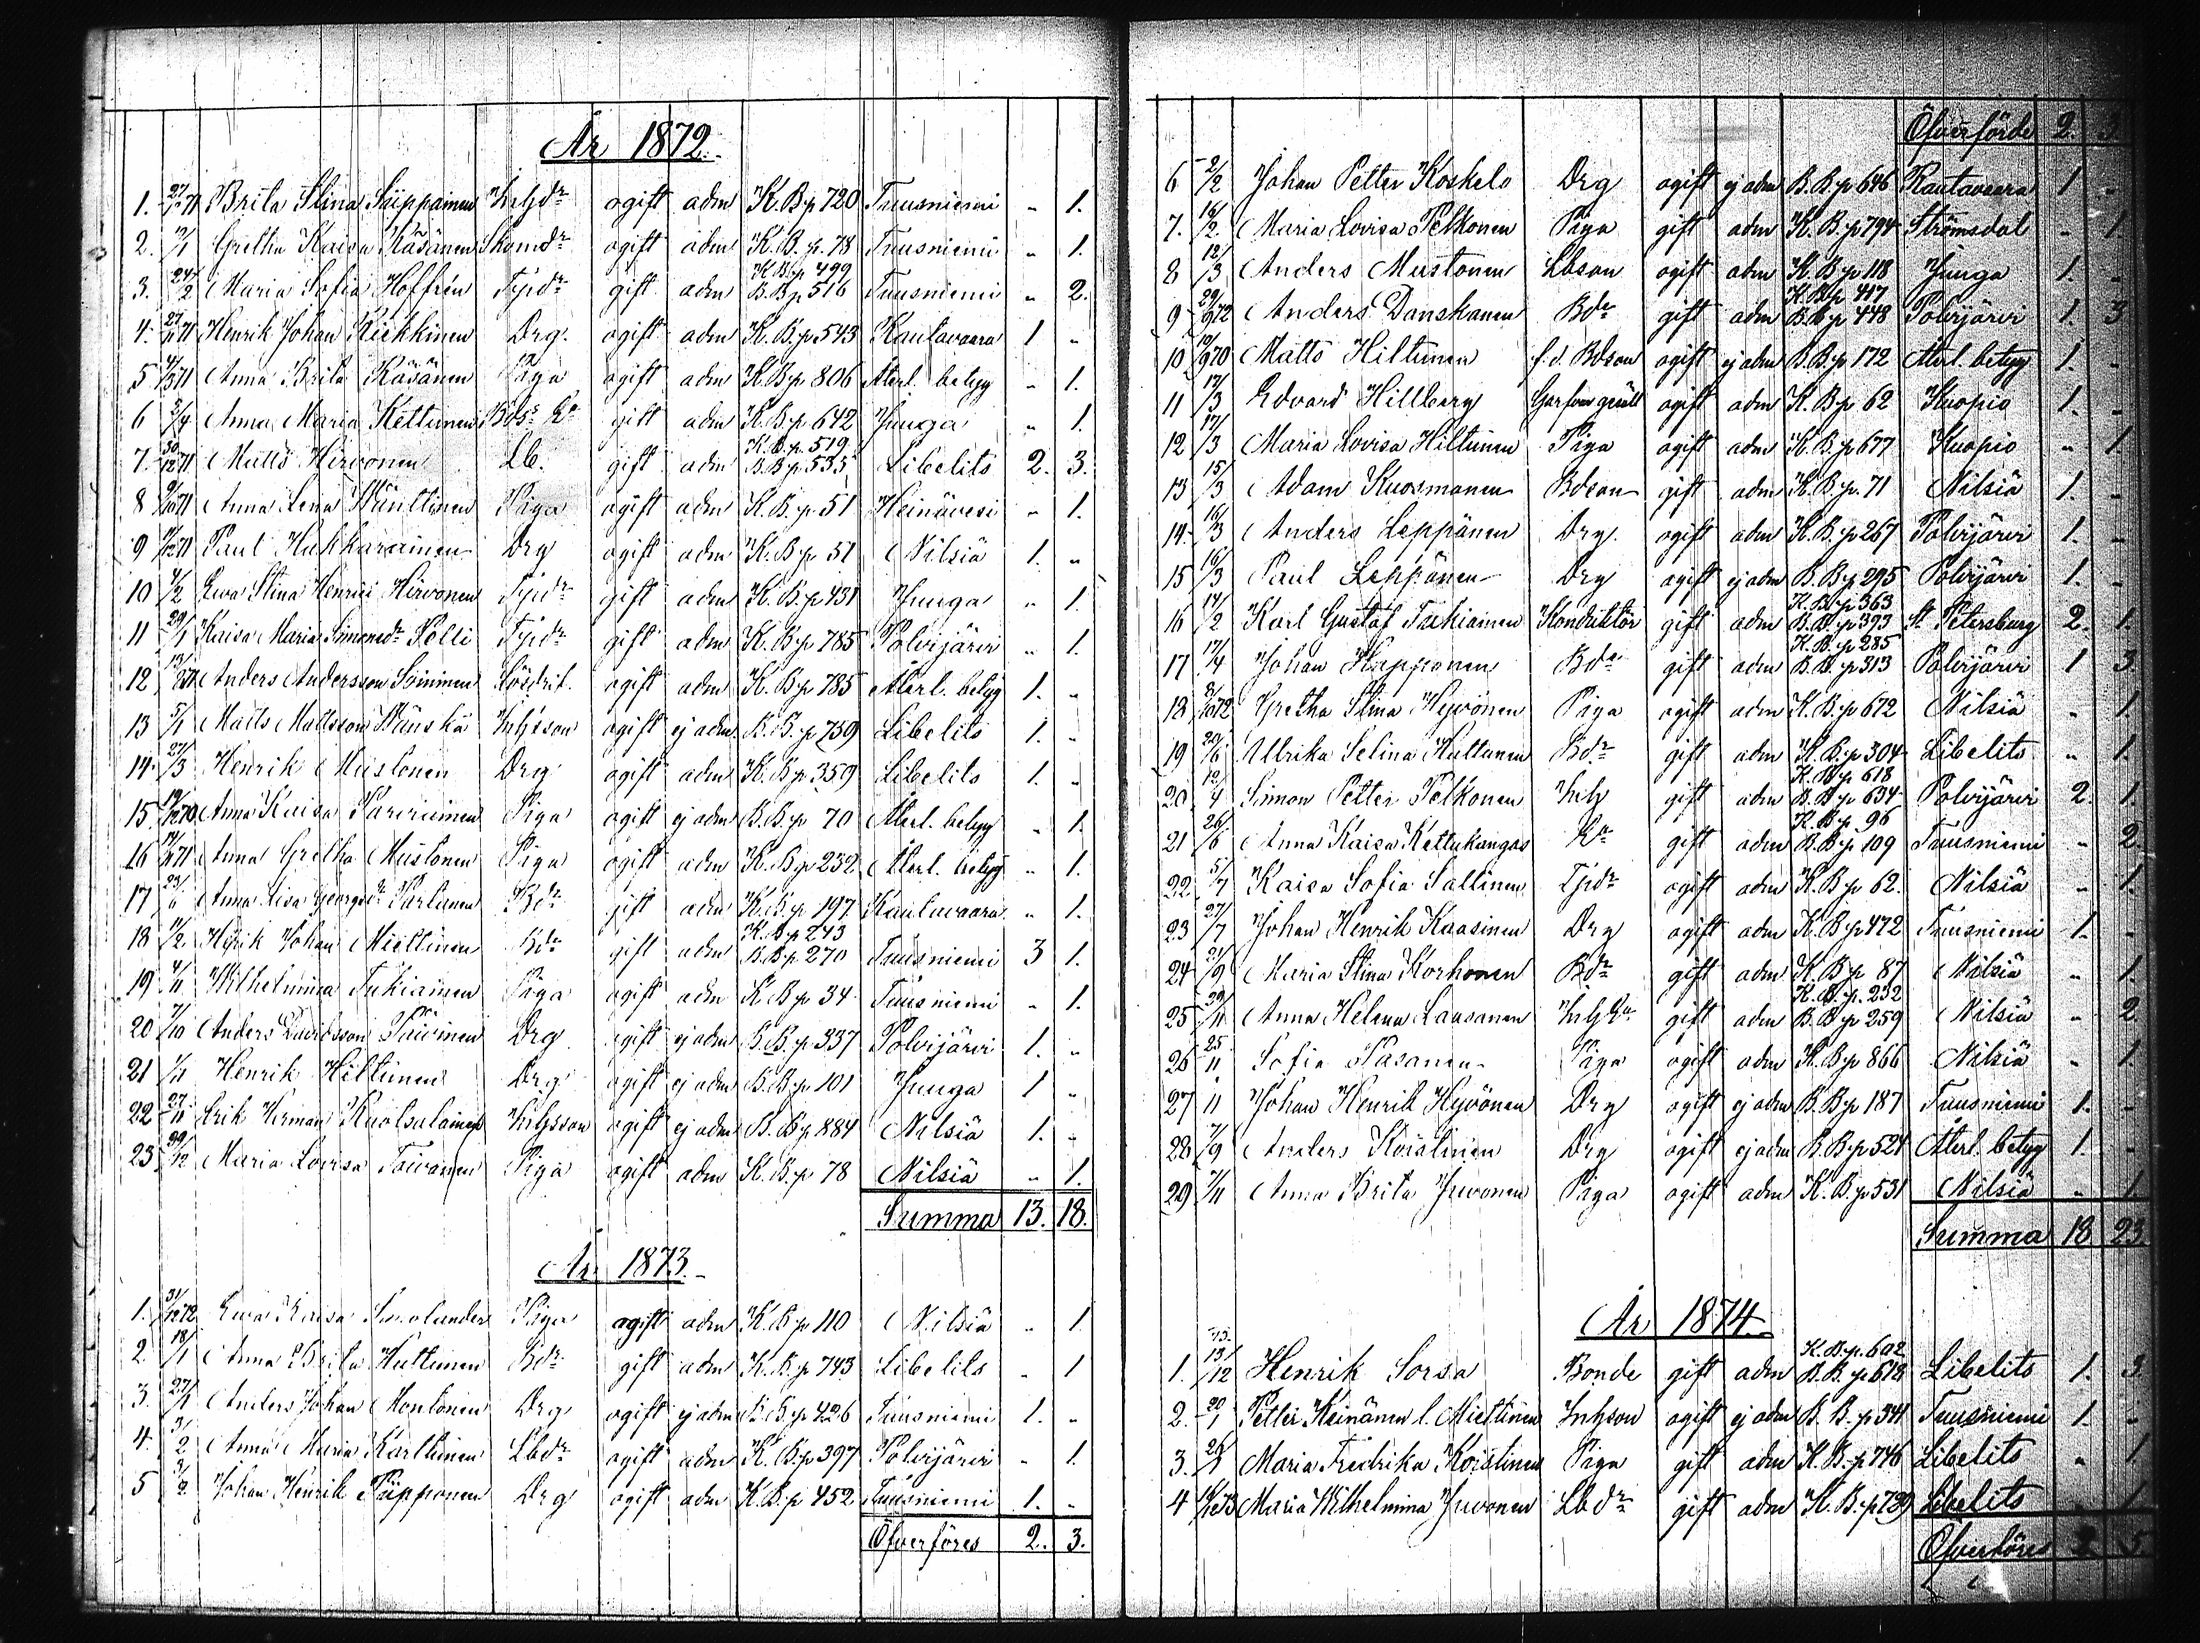 År 1872.
1. 27/1 71 Brita Stina Säppainen Inhjdr ogift adm K.B.p 720 Tuusniemi " 1.
2. Gretha Kaisa Räsänen Skomdr ogift adm K.B.p. 78 Tuusniemi " 1.
K.B.p 499
3. 24/2 Maria Sofia Hoffrén Tjrdr gift adm B.B.p 516 Tuusniemi " 2.
4. Henrik Johan Keihkinen Drg. ogift adm K.B.p. 543 Kautavaara 1 "
5 Anna Brita Räsänen Piga ogift adm K.B.p 806 Återl. betyg " 1.
6 Anna Maria Kettunen gift adm K.B.p 642 Juuga " 1.
K.B.p. 519
7. Matts Hirvonen Lb. gift adm B.B.p 535 Libelits 2. 3.
8 Anna Lena Mänttinen Piga ogift adm K.B.p 51 Heinävesi " 1.
9 Paul Hukkarainen Drg ogift adm K.B.p 51 Nilsiä 1. "
10 4/2 Ewa Stina Henrici Hirvonen Tjrdr gift adm K.B.p 431 Juuga " 1.
11 29/1 Kaisa Maria Simonsdr Polli Tjrdr gift adm K.B.p 785 Polvijärvi " 1.
12 Anders Andersson Sominen Lösdrif. ogift adm K.B.p 785 Återl. betyg 1. "
13 Matts Mattsson Mänskä Inhjson ogift ej adm B.B.p 759 Libelits 1. "
14. 27/3 Henrik Mustonen Drg ogift adm K.B.p 359 Libelits 1. "
15. Anna Kaisa Parviainen Piga ogift ej adm B.B.p 70 Återl. betyg " 1.
16 Anna Gretha Mustonen Piga ogift adm K.B.p 232 Återl. betyg " 1.
17 Anna Lisa Georgsdr Partanen Bdr gift adm K.B.p 197 Kautavaara " 1.
K.B.p 243
18 Henrik Johan Miettinen Bdr gift adm B.B.p. 270 Tuusniemi 3 1.
19 4/11 Wilhelmina Tukiainen Piga ogift adm K.B.p 34 Tuusniemi " 1.
20 7/10 Anders Davidsson Päivinen Drg ogift ej adm B.B.p 337 Polvijärvi 1. "
21 1/11 Henrik Hiltunen Drg ogift ej adm B.B.p 101 Juuga 1 "
22 27/11 Erik Herman Kaotsalainen Inhjsson ogift ej adm B.B.p 884 Nilsiä 1. "
23 29/12 Maria Lovisa Toivanen Piga ogift adm K.B.p 78 Nilsiä " 1.
Summa 13. 18.
År 1873.
1. 31/12 72 Ewa Kaisa Smolander Piga ogift adm K.B.p 110 Nilsiä " 1.
2. 18/1 Anna Brita Huttunen Bdr gift adm K.B.p 743 Libelits " 1
3. 27/1 Anders Johan Montonen Drg ogift ej adm B.B.p 426 Tuusniemi 1. "
4. 3/2 Anna Maria Karttunen Lbdr ogift adm K.B.p 397 Polvijärvi " 1.
5 3/2 Johan Henrik Piipponen Drg ogift adm K.B.p 452 Tuusniemi 1. "
Öfverföres 2. 3.
Öfverförde 2. 3.
6 2/2 Johan Petter Koskelo Drg ogift ej adm B.B.p 646 Kautavaara 1 "
7. 16/2. Maria Lovisa Pelkonen Piga gift adm K.B.p 794 Strömsdal " 1
8 12/3 Anders Mustonen Lbson ogift adm K.B.p 118 Juuga 1. "
K.B.p 417
9 29/9 72 Anders Danskanen Bdr gift adm B.B.p 448 Polvijärvi 1. 3
10 Matts Hiltunen f.d. Bdson ogift ej adm B.B.p 172 Återl. betyg 1. "
11 17/3 Edvard Hillberg Garfvaregesäll ogift adm K.B.p 62 Kuopio 1. "
12 17/3 Maria Lovisa Hiltunen Piga ogift adm K.B.p 677 Kuopio " 1.
13 15/3 Adam Kuosmanen Bdson gift adm K.B.p. 71 Nilsiä 1. "
14. 16/3 Anders Leppänen Drg. ogift adm K.B.p 267 Polvijärvi 1. "
15 16/3 Paul Leppänen Drg ogift ej adm B.B.p 295 Polvijärvi 1. "
K.B.p 363
16 14/2 Karl Gustaf Tukiainen Konduktör gift adm B.B.p 393 St. Petersburg 2. 1.
K.B.p. 285
17 17/4 Johan Happonen Bdr gift adm B.B.p 313 Polvijärvi 1 3
18 Gretha Stina Hyvönen Piga ogift adm K.B.p 672 Nilsiä " 1.
19 20/6 Ullrika Selina Huttunen Bdr gift adm K.B.p 304 Libelits " 1.
K.B.p 618
20 Simon Petter Pelkonen Inhj gift adm B.B.p 634 Polvijärvi 2. 1.
K.B.p. 96
21 26/6 Anna Kaisa Kettukangas gift adm B.B.p 109 Tuusniemi " 2.
22 5/7 Kaisa Sofia Sallinen Tjrdr ogift adm K.B.p 62. Nilsiä " 1.
23 27/7 Johan Henrik Kaasinen Drg ogift adm K.B.p 472 Tuusniemi 1. "
24 21/9 Maria Stina Korhonen Bdr gift adm K.B.p 87 Nilsiä " 1.
K.B.p. 232
25 Anna Helena Laasanen Inhj Ea gift adm B.B.p 259 Nilsiä " 2
26 25/11 Sofia Pasanen Piga ogift adm K.B.p 866 Nilsiä " 1.
27 Johan Henrik Hyvönen Drg ogift ej adm B.B.p 187 Tuusniemi 1. "
28 7/9 Anders Koistinen Drg ogift ej adm B.B.p 521 Återl. betyg 1. "
29 7/11 Anna Brita Juvonen Piga ogift adm K.B.p 531 Nilsiä " 1
Summa 18 23.
År 1874.
K.B.p. 602
1. 13/12 Henrik Sorsa Bonde gift adm B.B.p 618 Libelits 1. 3.
2. 20/1 Petter Keinänen l. Miettinen Inhjson ogift ej adm B.B.p 341 Tuusniemi 1. "
3. Maria Fredrika Koistinen Piga gift adm K.B.p 746 Libelits " 1
4 Maria Wilhelmina Juvonen Lbdr gift adm K.B.p. 729 Libelits " 1
Öfverföres 2 5